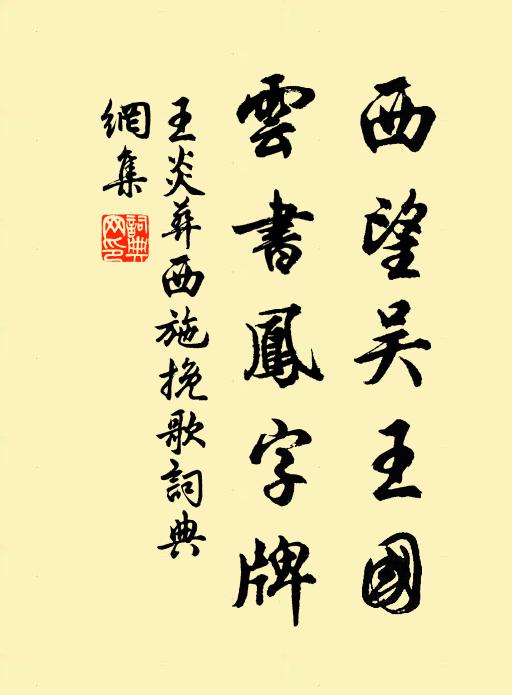 西望吳王國
雲書鳳字牌
王炎葬西施挽歌詞典
網集
詞典網印